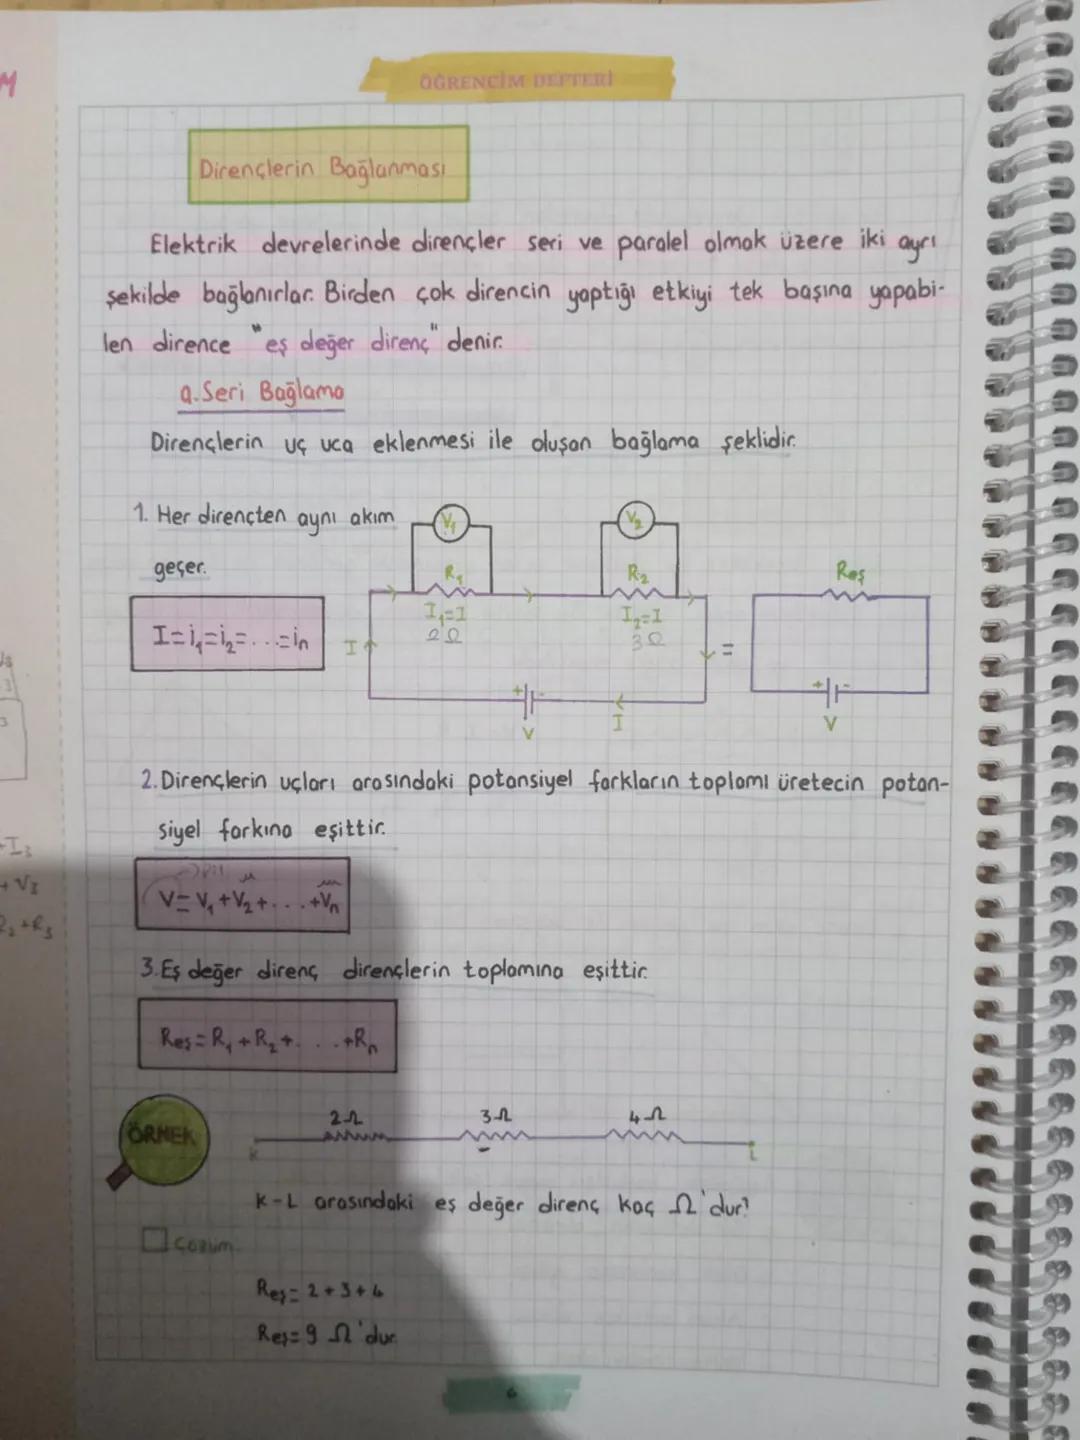 ÖĞRENCİM DEFTERİ
Dirençlerin Bağlanması
Elektrik devrelerinde dirençler seri ve paralel olmak üzere iki ayrı
şekilde bağlanırlar. Birden çok direncin yaptığı etkiyi tek başına yapabi-
len dirence "eş değer direnç" denir.
a. Seri Bağlama
Dirençlerin uç uca eklenmesi ile oluşan bağlama şeklidir.
1. Her dirençten aynı akım
geçer.
I=i₁=i₂=...=iₙ
V₁ V₂
R₁ R₂ Reş
I₁=I I₂=I
2Ω 3Ω
I =
+ - + -
V I V
2. Dirençlerin uçları arasındaki potansiyel farkların toplamı üretecin potan-
siyel farkına eşittir.
Pil
V=V₁+V₂+...+Vₙ
3. Eş değer direnç dirençlerin toplamına eşittir.
Reş=R₁+R₂+...+Rₙ
ÖRNEK
2Ω 3Ω 4Ω
K L
K-L arasındaki eş değer direnç kaç Ω'dur?
Çözüm
Reş=2+3+4
Reş=9 Ω'dur.
6
M
+I₃
+V₃
R₂+R₃